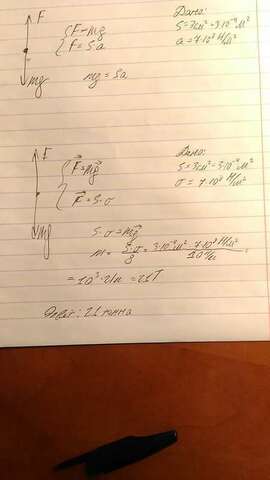 F
F=mg
F=S·a
mg
mg = Sa
Дано:
S=3см²=3·10⁻⁴м²
a=7·10⁸ Н/м²
F
F=mg
F=S·σ
mg
Дано:
S=3см²=3·10⁻⁴м²
σ=7·10⁸ Н/м²
S·σ=mg
m = S·σ/g = 3·10⁻⁴м²·7·10⁸Н/м² / 10Н/кг =
=10³·21кг=21Т
Ответ: 21 тонна